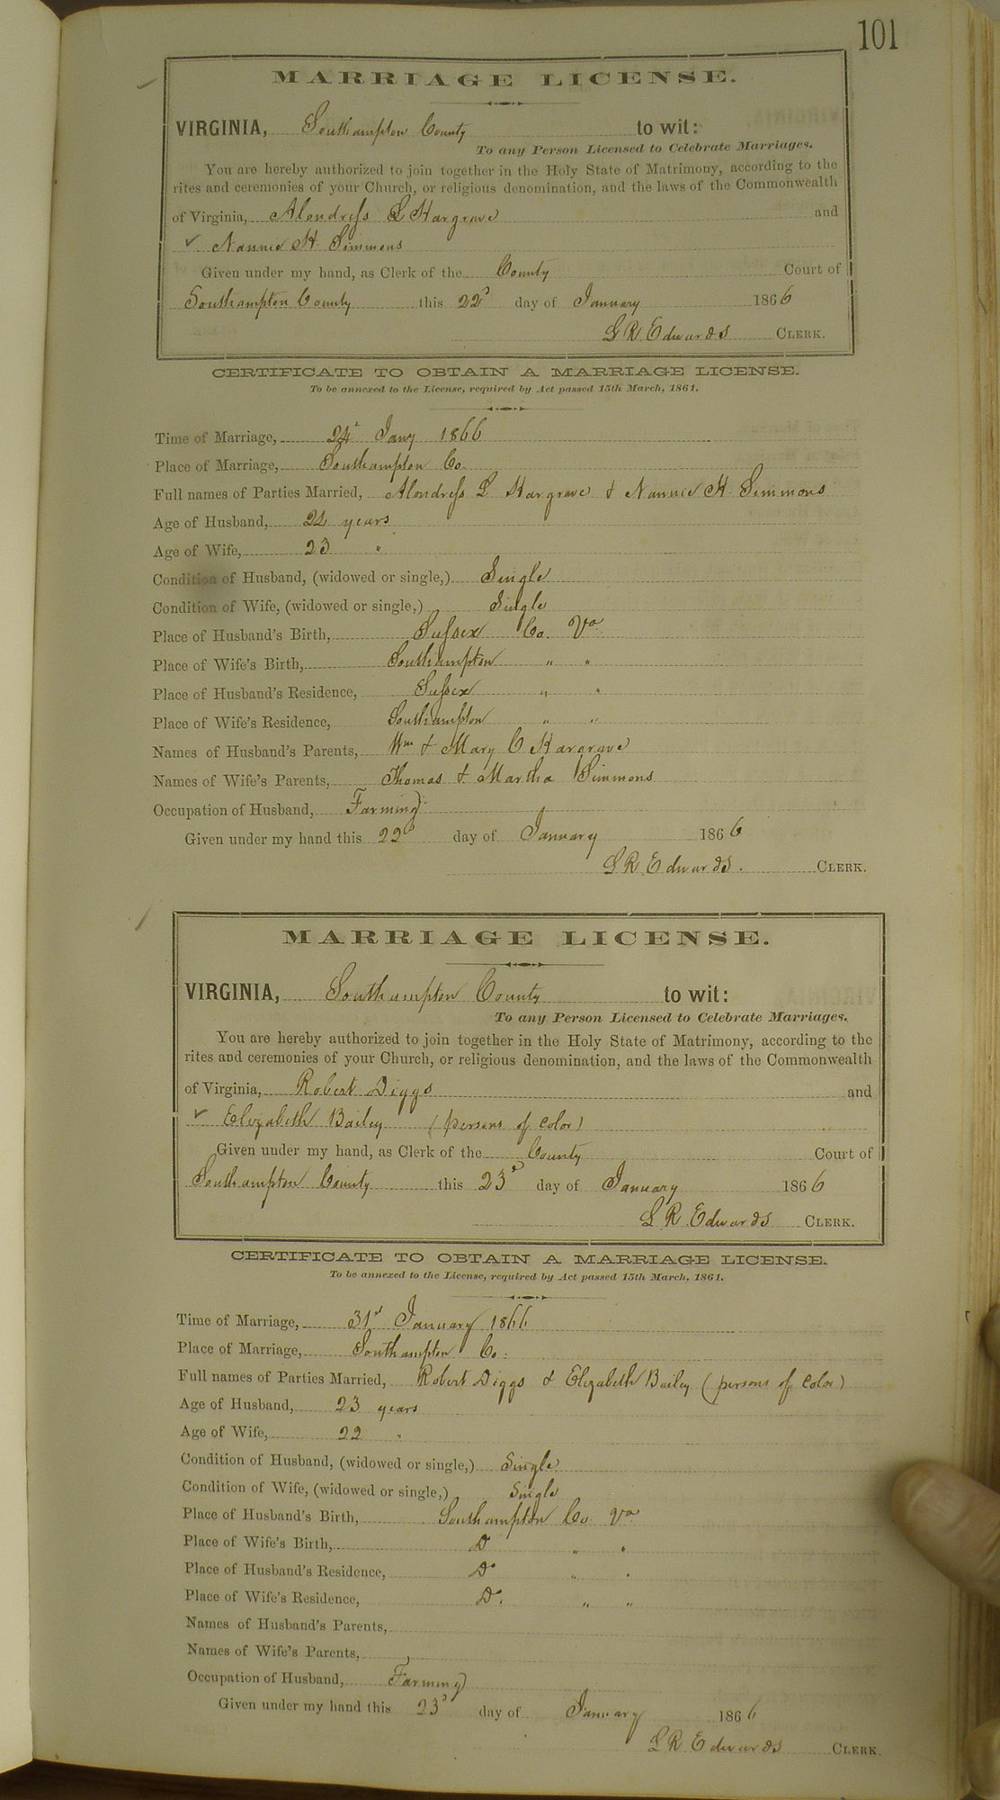 101
MARRIAGE LICENSE.
VIRGINIA, Southampton County to wit:
To any Person Licensed to Celebrate Marriages.
You are hereby authorized to join together in the Holy State of Matrimony, according to the
rites and ceremonies of your Church, or religious denomination, and the laws of the Commonwealth
of Virginia, Alondress L Hargrave and
✓ Nannie H. Simmons
Given under my hand, as Clerk of the County Court of
Southampton County this 22d day of January 1866
L R Edwards CLERK.
CERTIFICATE TO OBTAIN A MARRIAGE LICENSE.
To be annexed to the License, required by Act passed 15th March, 1861.
Time of Marriage, 24d Jany 1866
Place of Marriage, Southampton Co.
Full names of Parties Married, Alondress L Hargrave & Nannie H Simmons
Age of Husband, 24 years
Age of Wife, 23 "
Condition of Husband, (widowed or single,) Single
Condition of Wife, (widowed or single,) Single
Place of Husband's Birth, Sussex Co. Va
Place of Wife's Birth, Southampton " "
Place of Husband's Residence, Sussex " "
Place of Wife's Residence, Southampton " "
Names of Husband's Parents, Wm & Mary C Hargrave
Names of Wife's Parents, Thomas & Martha Simmons
Occupation of Husband, Farming
Given under my hand this 22d day of January 1866
L R Edwards. CLERK.
MARRIAGE LICENSE.
VIRGINIA, Southampton County to wit:
To any Person Licensed to Celebrate Marriages.
You are hereby authorized to join together in the Holy State of Matrimony, according to the
rites and ceremonies of your Church, or religious denomination, and the laws of the Commonwealth
of Virginia, Robert Diggs and
✓ Elizabeth Bailey (persons of color)
Given under my hand, as Clerk of the County Court of
Southampton County this 23d day of January 1866
L R Edwards CLERK.
CERTIFICATE TO OBTAIN A MARRIAGE LICENSE.
To be annexed to the License, required by Act passed 15th March, 1861.
Time of Marriage, 31st January 1866
Place of Marriage, Southampton Co:
Full names of Parties Married, Robert Diggs & Elizabeth Bailey (persons of color)
Age of Husband, 23 years
Age of Wife, 22 "
Condition of Husband, (widowed or single,) Single
Condition of Wife, (widowed or single,) Single
Place of Husband's Birth, Southampton Co Va
Place of Wife's Birth, Do " "
Place of Husband's Residence, Do " "
Place of Wife's Residence, Do. " "
Names of Husband's Parents,
Names of Wife's Parents,
Occupation of Husband, Farming
Given under my hand this 23d day of January 1866
L R Edwards CLERK.